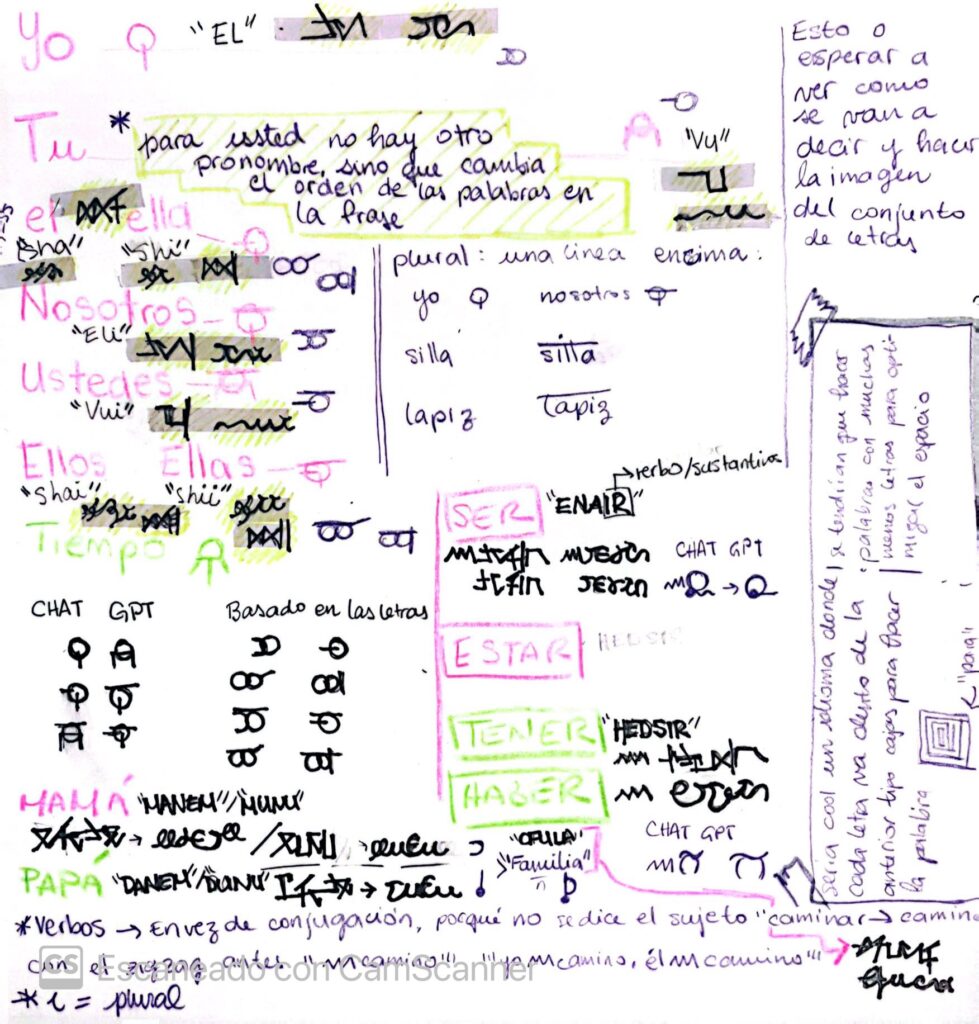 Yo "EL"
Tu * para ussted no hay otro
pronombre, sino que cambia
el orden de las palabras en
la frase
"Vu"
el ella
"Sha" "Shi"
Nosotros
"Eli"
Ustedes
"Vui"
Ellos Ellas
"Shai" "Shii"
Tiempo
plural: una linea encima:
yo nosotros
silla silla
lapiz lapiz
Esto o
esperar a
ver como
se van a
decir y hacer
la imagen
del conjunto
de letras
CHAT GPT Basado en las letras
verbo/sustantivo
SER "ENAIR"
CHAT GPT
ESTAR HEDSIR
TENER "HEDSIR"
HABER
CHAT GPT
MAMÁ "MANEM"/"MUMU"
PAPÁ "DANEM"
"Familia"
Seria cool un idioma donde
cada letra va dentro de la
anterior tipo cajas para hacer
la palabra
se tendrían que hacer
palabras con muchas
menos letras para opti
migar el espacio
"para"
*Verbos → En vez de conjugación, porqué no se dice el sujeto "caminar → camino
con el zigzag antes "camino" "yo camino, él camino"
* i = plural
CS Escaneado con CamScanner